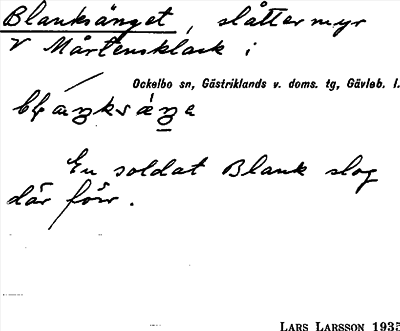 Blanksänget, slåttermyr
V Mårtensklack i
Ockelbo sn, Gästriklands v. doms. tg, Gävleb. l.
En soldat Blank slog
där förr.
LARS LARSSON 1935